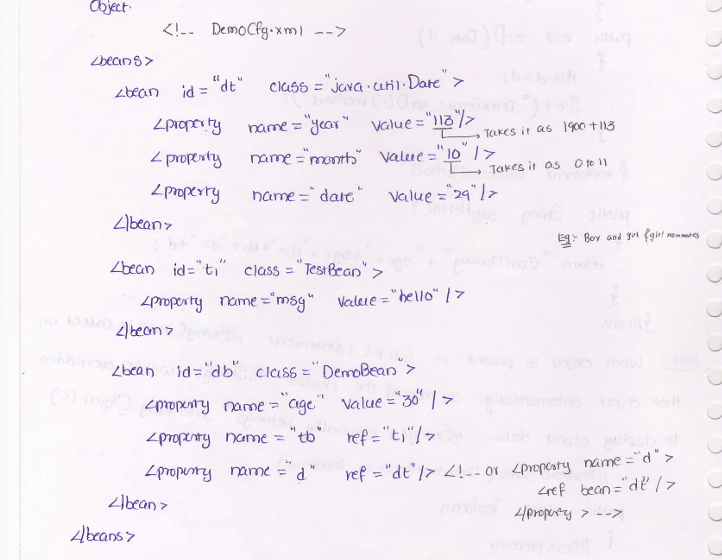 Object.
<!-- DemoCfg.xml -->
<beans>
<bean id="dt" class="java.util.Date">
<property name="year" value="113"/>
Takes it as 1900+113
<property name="month" value="10"/>
Takes it as 0 to 11
<property name="date" value="29"/>
</bean>
Eg:- Boy and girl
<bean id="t1" class="TestBean">
<property name="msg" value="hello"/>
</bean>
<bean id="db" class="DemoBean">
<property name="age" value="30"/>
<property name="tb" ref="t1"/>
<property name="d" ref="dt"/> <!-- or <property name="d">
<ref bean="dt"/>
</property> -->
</bean>
</beans>